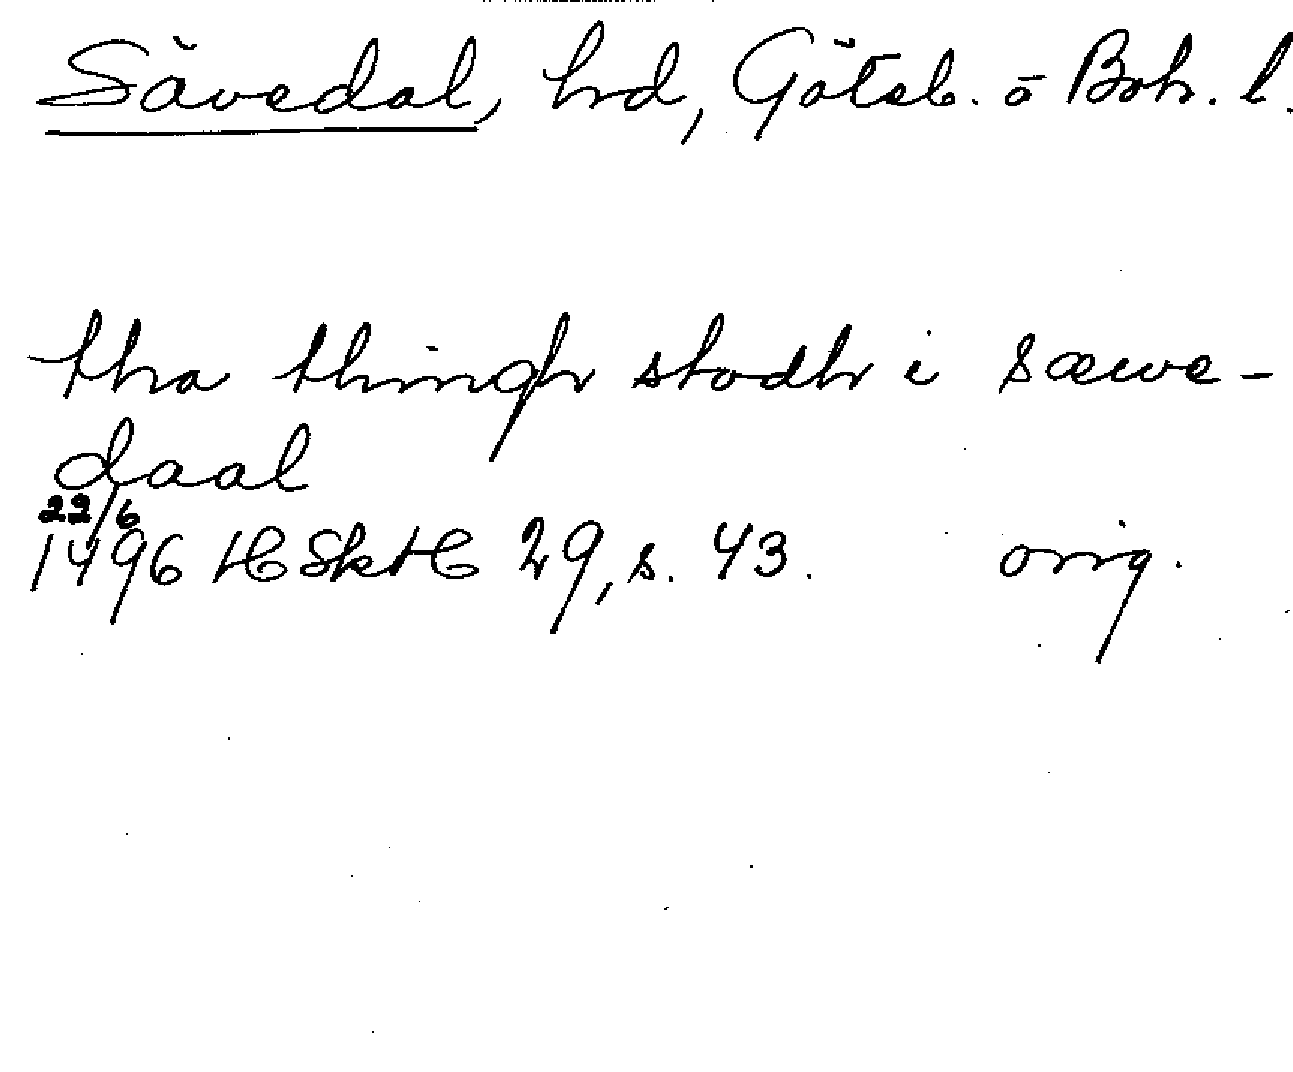 Sävedal, hd, Göteb. o Boh. l.
tha thingh stodh i Sæwe-
daal
22/6
1496 HSkH 29, s. 43. orig.